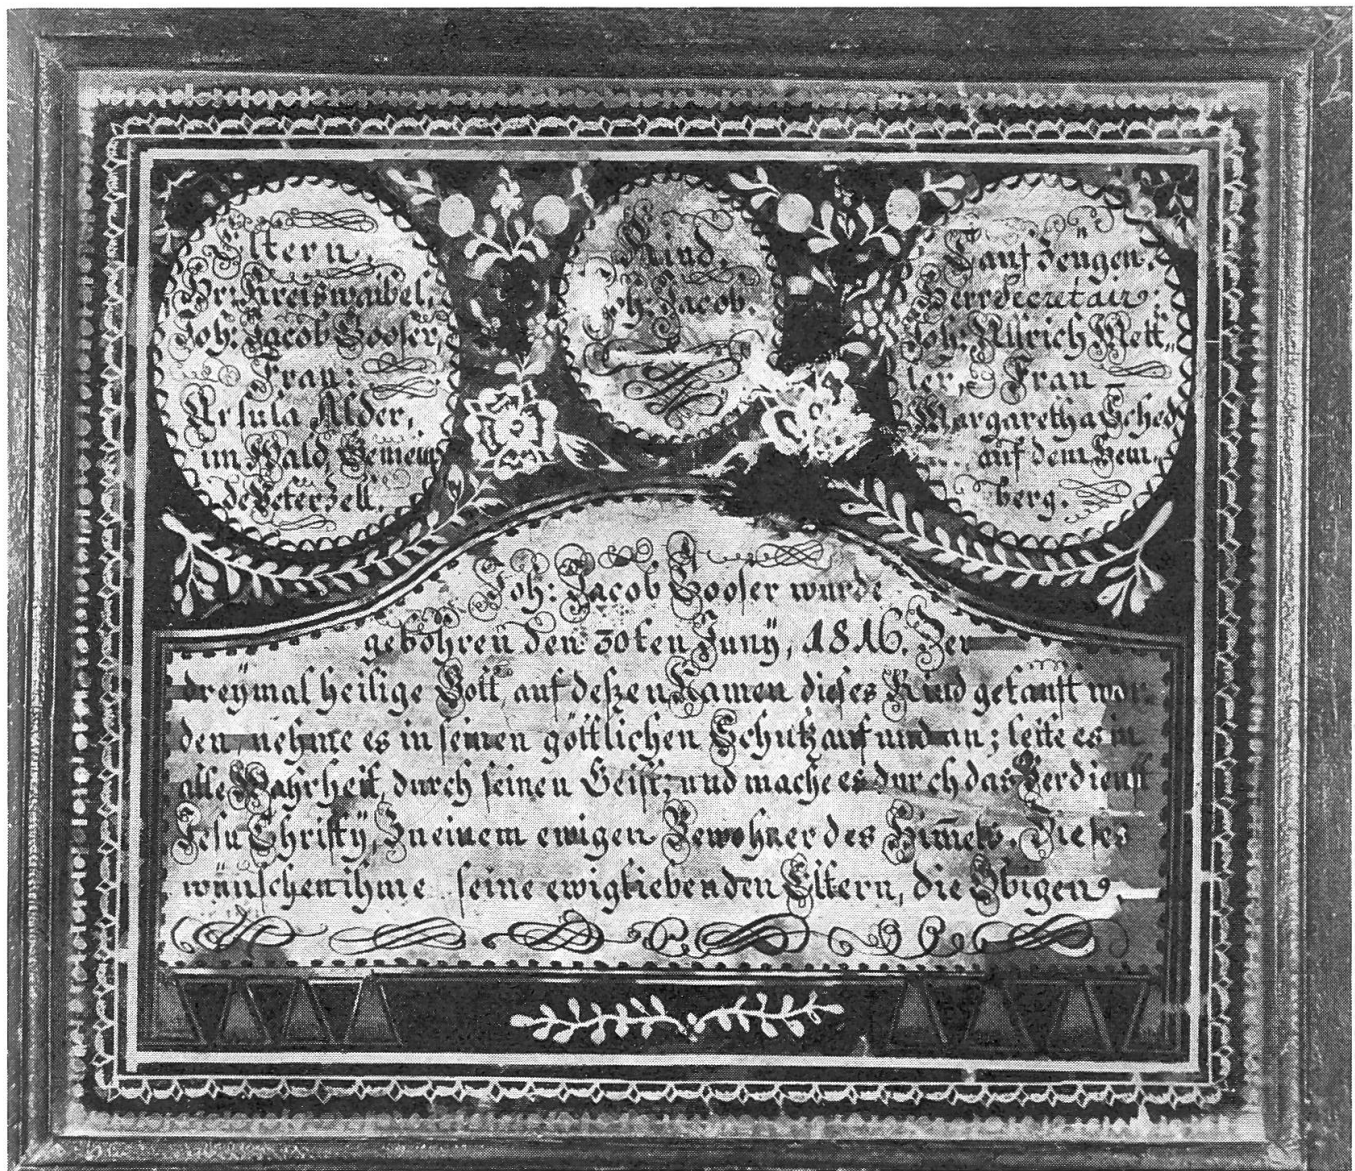 Eltern.
Hr: Kreiswaibel,
Joh: Jacob Gooser
Frau:
Ursula Alder,
im Wald, Gemein
de Peterzell.
Kind.
Joh: Jacob.
Taufzeugen.
Herr Secretair:
Joh: Ullrich Mett„
ler, Frau
Margaretha Sched
auf dem Hem„
berg.
Joh: Jacob Gooser wurde
gebohren den 30ten Junÿ, 1816. Der
dreÿmal heilige Gott, auf deßen Namen dieses Kind getauft wor„
den, nehme es in seinen göttlichen Schutz auf und an; leite es in
alle Wahrheit, durch seinen Geist; und mache es durch das Verdienst
Jesu Christÿ, Zu einem ewigen Bewohner des Him̄els. Dieses
wünschen ihme seine ewigliebenden Eltern, die Obigen.